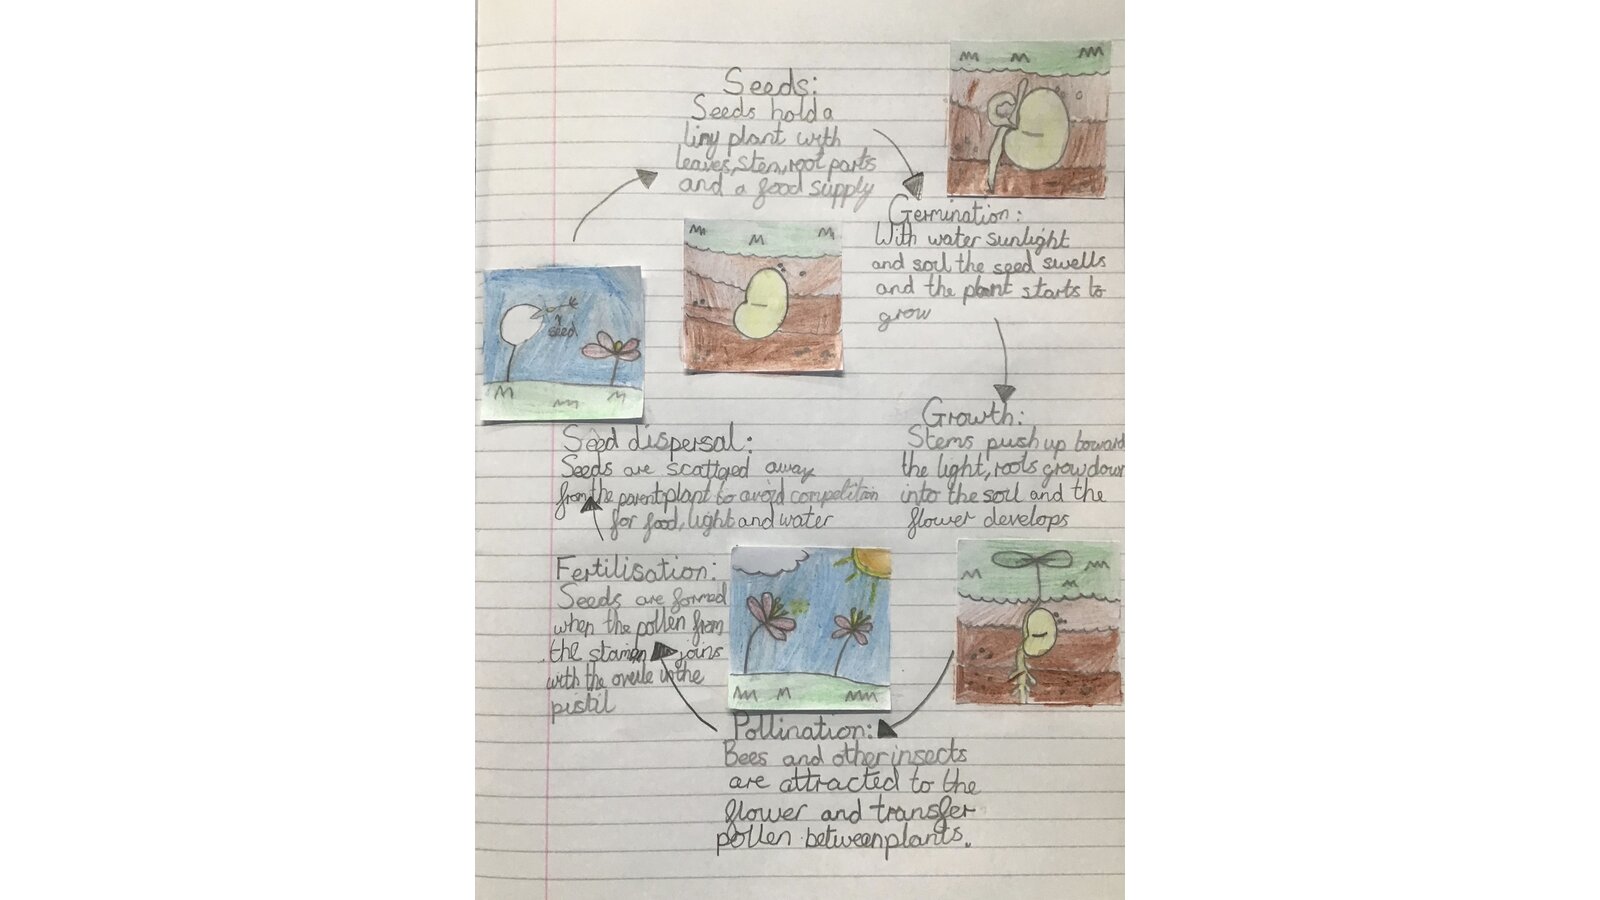 Seeds:
Seeds hold a
tiny plant with
leaves, stem, root parts
and a food supply
Germination:
With water sunlight
and soil the seed swells
and the plant starts to
grow
Growth:
Stems push up toward
the light, roots grow down
into the soil and the
flower develops
Pollination:
Bees and other insects
are attracted to the
flower and transfer
pollen between plants.
Fertilisation:
Seeds are formed
when the pollen from
the stamen joins
with the ovule in the
pistil
Seed dispersal:
Seeds are scattered away
from the parent plant to avoid competition
for food, light and water
seed